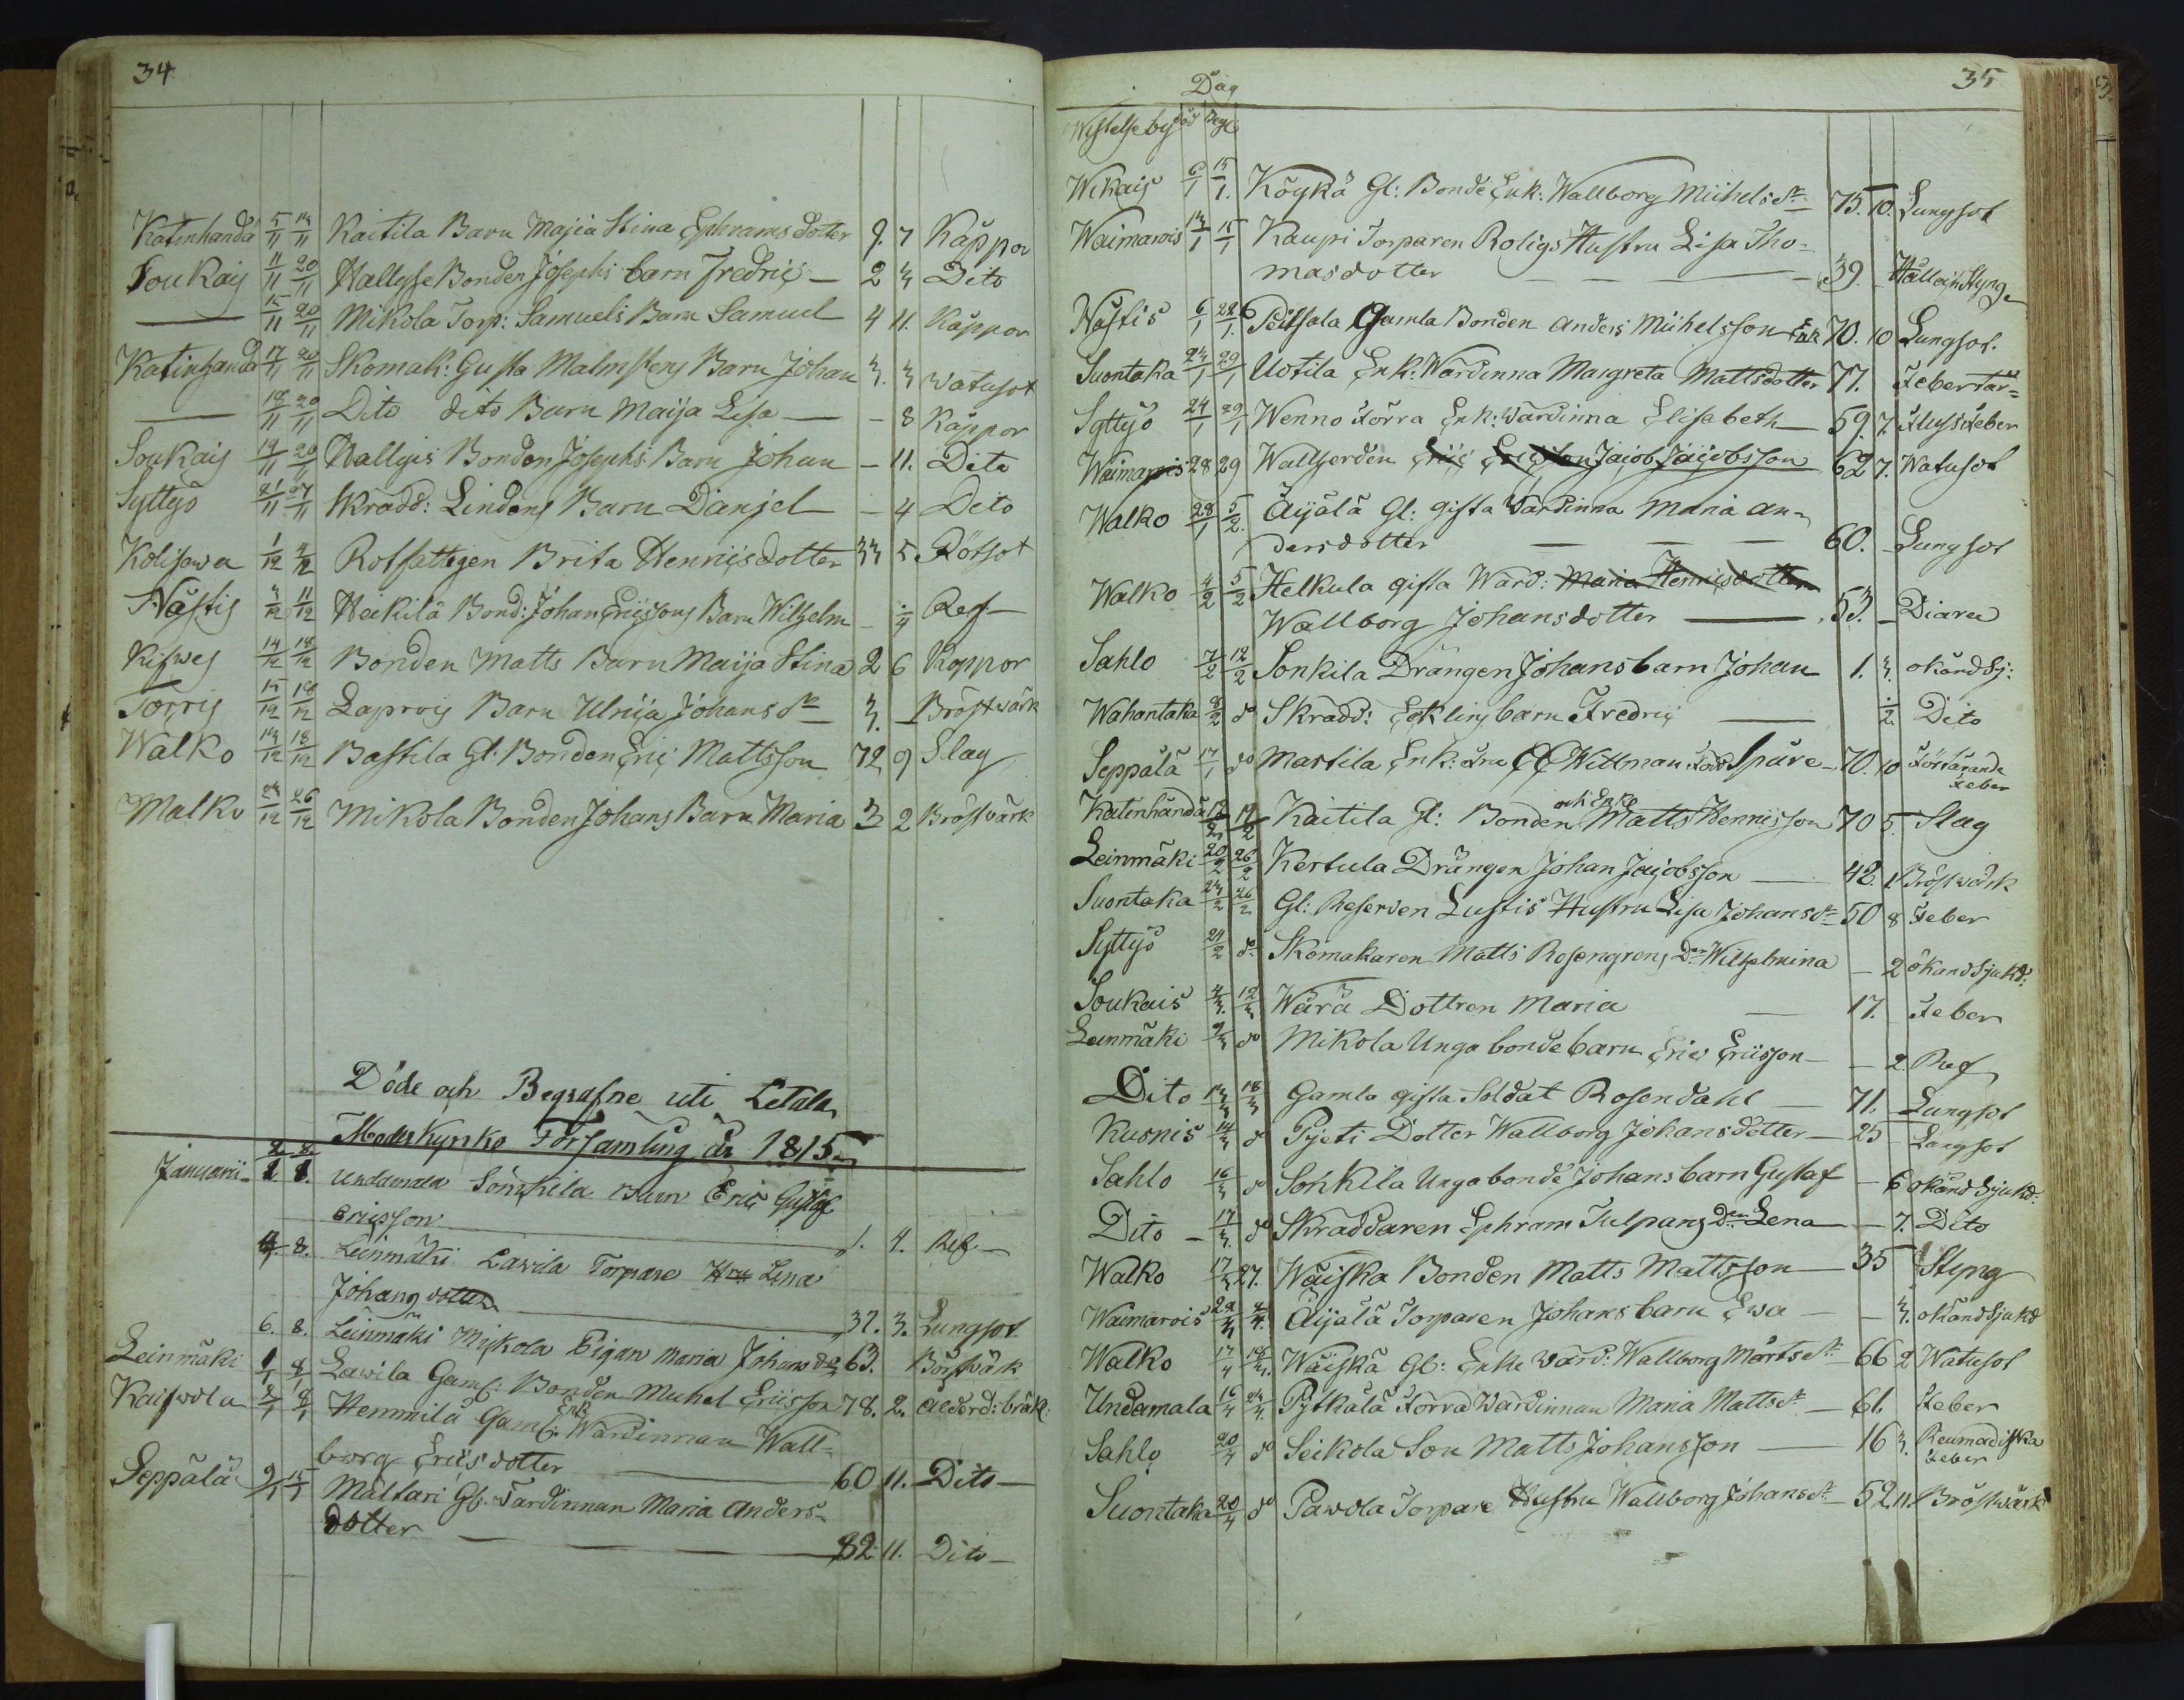 34
Katinhanda 5/11 13/11 Kaitila Barn Majia Stina Ephramsdotter 9. 7 Kåppor
Soukais 11/11 20/11 Hallyse Bonden Josephs barn Fredric — 2 3 Dito
— 15/11 20/11 Mikola Torp: Samuels Barn Samuel 4 11. Kåppor
Katinhanda 17/11 20/11 Skomak: Gusta Malmstens Barn Johan 3. 3 Watusot
— 18/11 20/11 Dito dito Barn Maija Lisa — - 8 Kåppor
Soukais 19/11 20/11 Hallyis Bonden Josephs Barn Johan — - 11. Dito
Syttyö 21/11 27/11 Skrädd: Lindens Barn Danjel — - 4 Dito
Kolisewa 1/12 4/12 Rotfattigen Brita Henricsdotter 33 5 Rötsot
Nästis 3/12 11/12 Heikilä Bond: Johan Ericssons Barn Wilhelm - 1/4 Ref —
Kifwes 14/12 18/12 Bonden Matts Barn Maija Stina 2 6 Koppor
Torris 15/12 18/12 Laprois Barn Ulrica Johansdr 3. — Bröstwärk
Walko 13/12 18/12 Bastila Gl: Bonden Eric Mattsson 72 9 Slag
Malko 23/12 26/12 Mikola Bonden Johans Barn Maria 3 2 Bröstwärk
Döde och Begrafne uti Letala
Moderkyrko Församling år 1815
Januarii 2. 8. Undamala Sonkila Barn Eric Gustaf
Ericsson — 1. 4. Ref. —
4 8. Leinmäki Lawila Torpare Hru Lena
Johansdotter — 37. 3. Lungsot
6. 8. Leinmäki Mikola Pigan Maria Johansdr 63. Bröstwärk
Leinmäki 1/1 8/1 Lawila Gaml: Bonden Michel Ericsson 78. 2. ålderd: bräk:
Kaifwola 8/1 8/1 Hemmilä Gaml: Enk Wärdinnan Wall-
borg Ericsdotter — 60 11. Dito —
Seppälä 9/1 15/1 Maltari Gl: Wärdinnan Maria Anders-
dotter — 82 11. Dito —
35
Dag
Wistelse by död Begr
Wikais 6/1 15/1. Köykä Gl: Bonde Enk: Wallborg Michelsdr 75. 10. Lungsot
Waimarois 13/1 15/1 Kaupi Torparen Roligs Hustru Lisa Tho-
masdotter — — — 39. Håll och Styng
Nästis 6/1 22/1. Peitsala Gamla Bonden Anders Michelsson Enk 70. 10 Lungsot.
Suontaka 23/1 29/1 Uotila Enk: Wärdinna Margreta Mattsdotter 77. Feber
Syttyö 24/1 29/1 Wenno Förra Enk: Wärdinna Elisabeth 59. 7. Flussfeber
Waimarois 28 29 Wallherden Eric Ericsson Jacob Jacobsson 62 7. Watusot
Walko 28/1 5/2. Äijälä Gl: gifta Wärdinna Maria An-
dersdotter — — — 60. — Lungsot
Walko 4/2 5/2 Helkula gifta Wärd: Maria Henricsdotter
Wallborg Johansdotter — 53. — Diarea
Sahlo 7/2 12/2 Sonkila Drängen Johans barn Johan 1. 3. okänd Sj:
Wahantaka 8/2 do Skrädd: Eckling barn Fredric — 1/2 Dito
Seppälä 17/1 do Mastila Enk: Fru Wittman Född Spåre — 70. 10 Förtärande
Feber
Katinhända 12/2 19/2 Kaitila Gl: Bonden och Enkl Matts Henricsson 70 5. Slag
Leinmäki 20/2 26/2 Kertula Drängen Johan Jacobsson — 42. 1 Bröstwärk
Suontaka 23/2 26/2 Gl: Reserven Lustis Hustru Lisa Johansdr 50 8 Feber
Syttyö 24/2 do Skomakaren Matts Rosengrens Dr Wilhelmina — 2 okänd Sjukd:
Soukais 4/3. 12/3 Wärä Dottren Maria — 17. Feber
Leinmäki 9/3 do Mikola Unga bonde barn Eric Ericsson — 2. Ref
Dito 13/3 18/3 Gamla gifta Soldat Rosendahl — 71. Lungsot
Kusnis 14/3 do Pyeti Dotter Wallborg Johansdotter — 25 Lungsot
Sahlo 16/3 do Sonkila Unga bonde Johans barn Gustaf — 6 okänd Sjukd:
Dito — 17/3. do Skräddaren Ephram Tulpans Dr Lena — 7. Dito
Walko 17/3 27. Wäiskä Bonden Matts Mattsson — 35 Styng
Waimarois 29/3 2/4. Äijälä Torparen Johans barn Ewa — - 3. okänd Sjukd
Walko 17/4 18/4. Wäiskä Gl: Enke Wärd: Wallborg Mårtsdr 66 2 Watusot
Undamala 16/4 23/4. Pytkälä Förra Wärdinnan Maria Mattsdr — 61. Feber
Sahlo 20/4 do Seikola Son Matts Johansson — 16 3. Reumadiska
Feber
Suontaka 20/4 do Pawola Torpare Hustru Wallborg Johansdr — 52 11. Bröstwärk